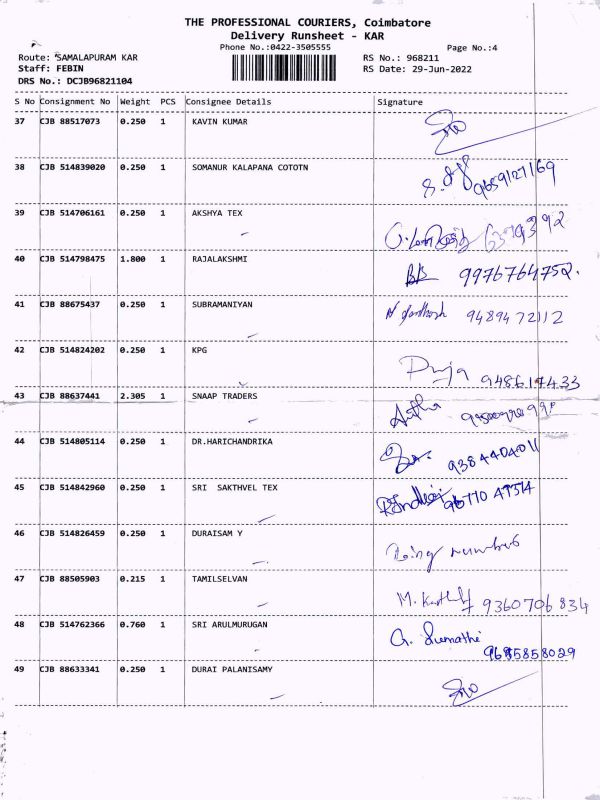 THE PROFESSIONAL COURIERS, Coimbatore
Delivery Runsheet - KAR
Phone No.:0422-3505555
Page No.:4
Route: SAMALAPURAM KAR
RS No.: 968211
Staff: FEBIN
RS Date: 29-Jun-2022
DRS No.: DCJB96821104
S No Consignment No Weight PCS Consignee Details Signature
37 CJB 88517073 0.250 1 KAVIN KUMAR
38 CJB 514839020 0.250 1 SOMANUR KALAPANA COTOTN
9659127169
39 CJB 514706161 0.250 1 AKSHYA TEX
40 CJB 514798475 1.800 1 RAJALAKSHMI
9976764752.
41 CJB 88675437 0.250 1 SUBRAMANIYAN
9489472112
42 CJB 514824202 0.250 1 KPG
948617433
43 CJB 88637441 2.305 1 SNAAP TRADERS
44 CJB 514805114 0.250 1 DR.HARICHANDRIKA
9384404011
45 CJB 514842960 0.250 1 SRI SAKTHVEL TEX
46 CJB 514826459 0.250 1 DURAISAM Y
number
47 CJB 88505903 0.215 1 TAMILSELVAN
9360706834
48 CJB 514762366 0.760 1 SRI ARULMURUGAN
G. Sumathi
49 CJB 88633341 0.250 1 DURAI PALANISAMY